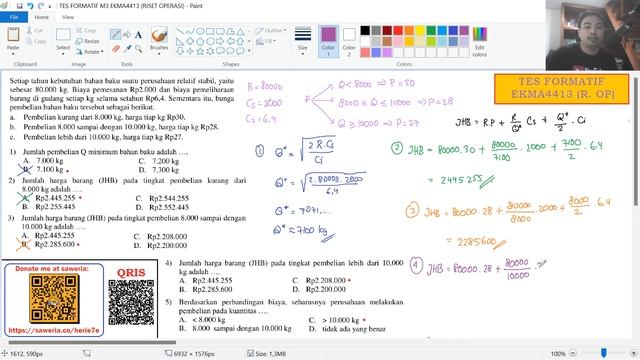 TES FORMATIF M3 EKMA4413 (RISET OPERASI) - Paint
File Home View
Paste
Cut
Copy
Clipboard
Select
Crop
Resize
Rotate
Image
Tools
Brushes
Shapes
Outline
Fill
Size
Color 1
Color 2
Colors
Edit colors
Edit with Paint 3D
Setiap tahun kebutuhan bahan baku suatu perusahaan relatif stabil, yaitu
sebesar 80.000 kg. Biaya pemesanan Rp2.000 dan biaya pemeliharaan
barang di gudang setiap kg selama setahun Rp6,4. Sementara itu, bunga
pembelian bahan baku tersebut sebagai berikut.
a. Pembelian kurang dari 8.000 kg, harga tiap kg Rp30.
b. Pembelian 8.000 sampai dengan 10.000 kg, harga tiap kg Rp28.
c. Pembelian lebih dari 10.000 kg, harga tiap kg Rp27.
1) Jumlah pembelian Q minimum bahan baku adalah ....
A. 7.000 kg C. 7.200 kg
B. 7.100 kg D. 7,300 kg
2) Jumlah harga barang (JHB) pada tingkat pembelian kurang dari
8.000 kg adalah ....
A. Rp2.445.255 C. Rp2.544.255
B. Rp2.255.445 D. Rp2.552.445
3) Jumlah harga barang (JHB) pada tingkat pembelian 8.000 sampai dengan
10.000 kg adalah ....
A. Rp2.445.255 C. Rp2.208.000
B. Rp2.285.600 D. Rp2.200.000
R = 80000
Cs = 2000
Ci = 6,4
P
Q < 8000 ⇒ P = 30
8000 ≤ Q ≤ 10000 ⇒ P = 28
Q ≥ 10000 ⇒ P = 27
TES FORMATIF
EKMA4413 (R. OP)
JHB = R.P + R/Q* Cs + Q*/2 . Ci
1 Q* = √(2 R.Cs / Ci)
Q* = √(2.80000.2000 / 6,4)
Q* = 7071,...
Q* ≈ 7100 kg
2 JHB = 80000.30 + 80000/7100 . 2000 + 7100/2 . 6,4
= 2445255
3 JHB = 80000.28 + 80000/8000 . 2000 + 8000/2 . 6,4
= 2285600
4 JHB = 80000.28 + 80000/10000 . 2
Donate me at saweria:
QRIS
https://saweria.co/herie7e
4) Jumlah harga barang (JHB) pada tingkat pembelian lebih dari 10.000
kg adalah ....
A. Rp2.445.255 C. Rp2.208.000
B. Rp2.285.600 D. Rp2.200.000
5) Berdasarkan perbandingan biaya, seharusnya perusahaan melakukan
pembelian pada kuantitas ....
A. < 8.000 kg C. > 10.000 kg
B. 8.000 sampai dengan 10.000 kg D. tidak ada yang benar
1612, 590px
6932 × 1576px
Size: 1,3MB
100%